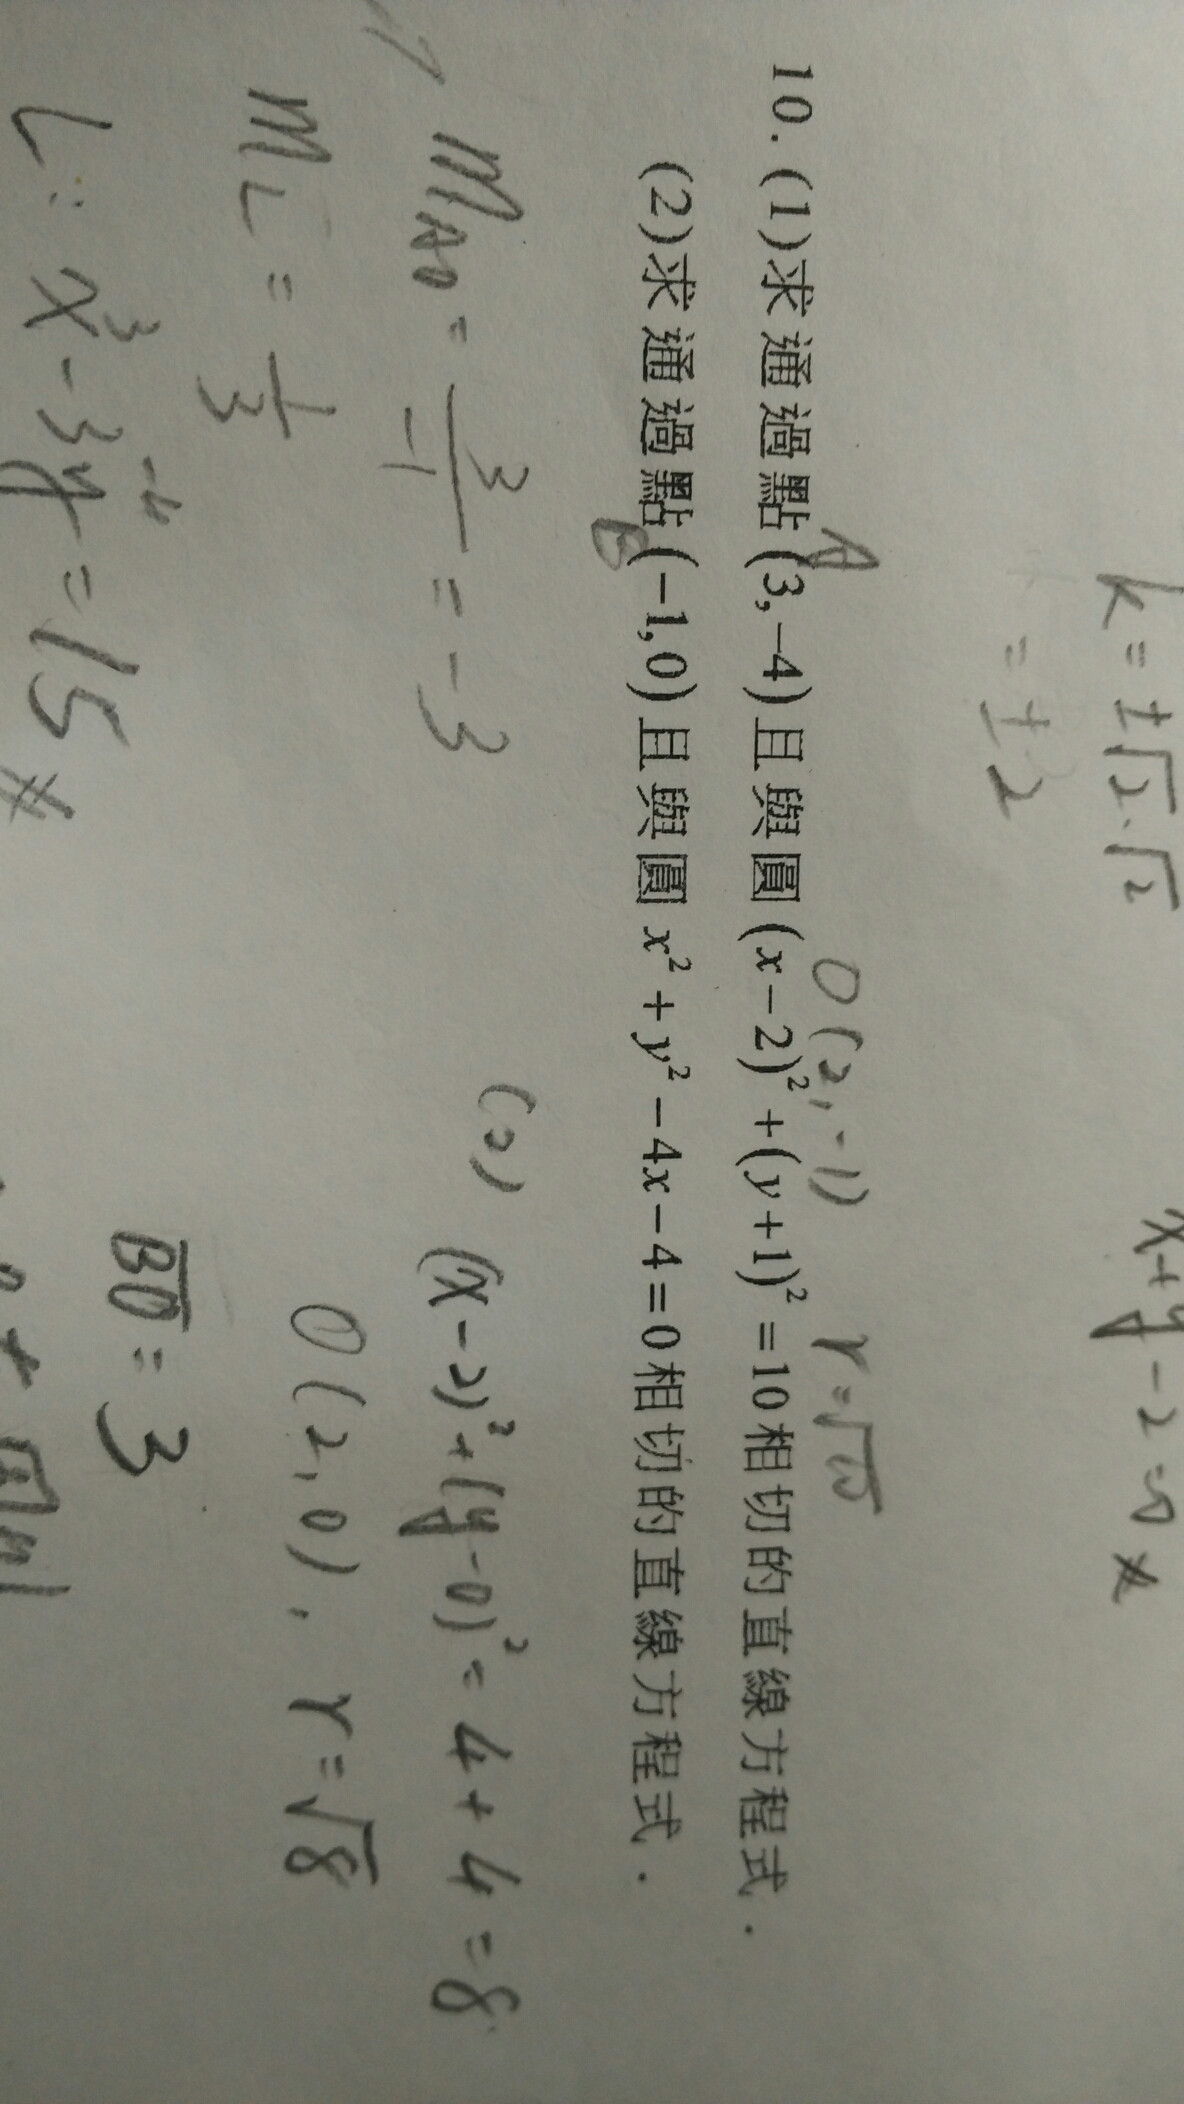 k = ±√2·√2
= ±2
x+y-2=0 #
O(2,-1) r=√10
A
10. (1)求通過點(3,−4)且與圓(x−2)²+(y+1)²=10相切的直線方程式.
(2)求通過點(−1,0)且與圓x²+y²−4x−4=0相切的直線方程式.
B
m_AO = 3/-1 = -3
m_L = 1/3
3 -4
L: x-3y = 15 #
(2) (x-2)²+(y-0)² = 4+4 = 8
O(2,0), r=√8
BO = 3